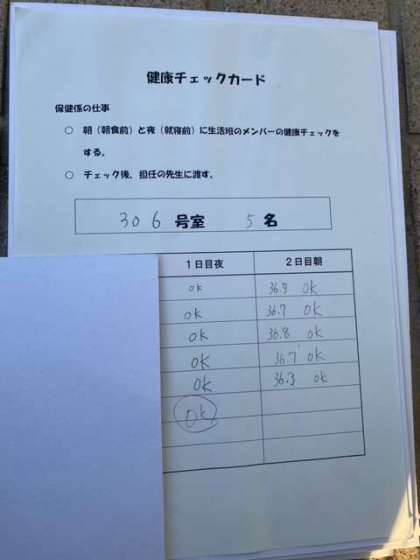 健康チェックカード
保健係の仕事
○ 朝（朝食前）と夜（就寝前）に生活班のメンバーの健康チェックを
する。
○ チェック後、担任の先生に渡す。
306 号室 5 名
1日目夜 2日目朝
OK 36.9 OK
OK 36.7 OK
OK 36.8 OK
OK 36.7 OK
OK 36.3 OK
OK